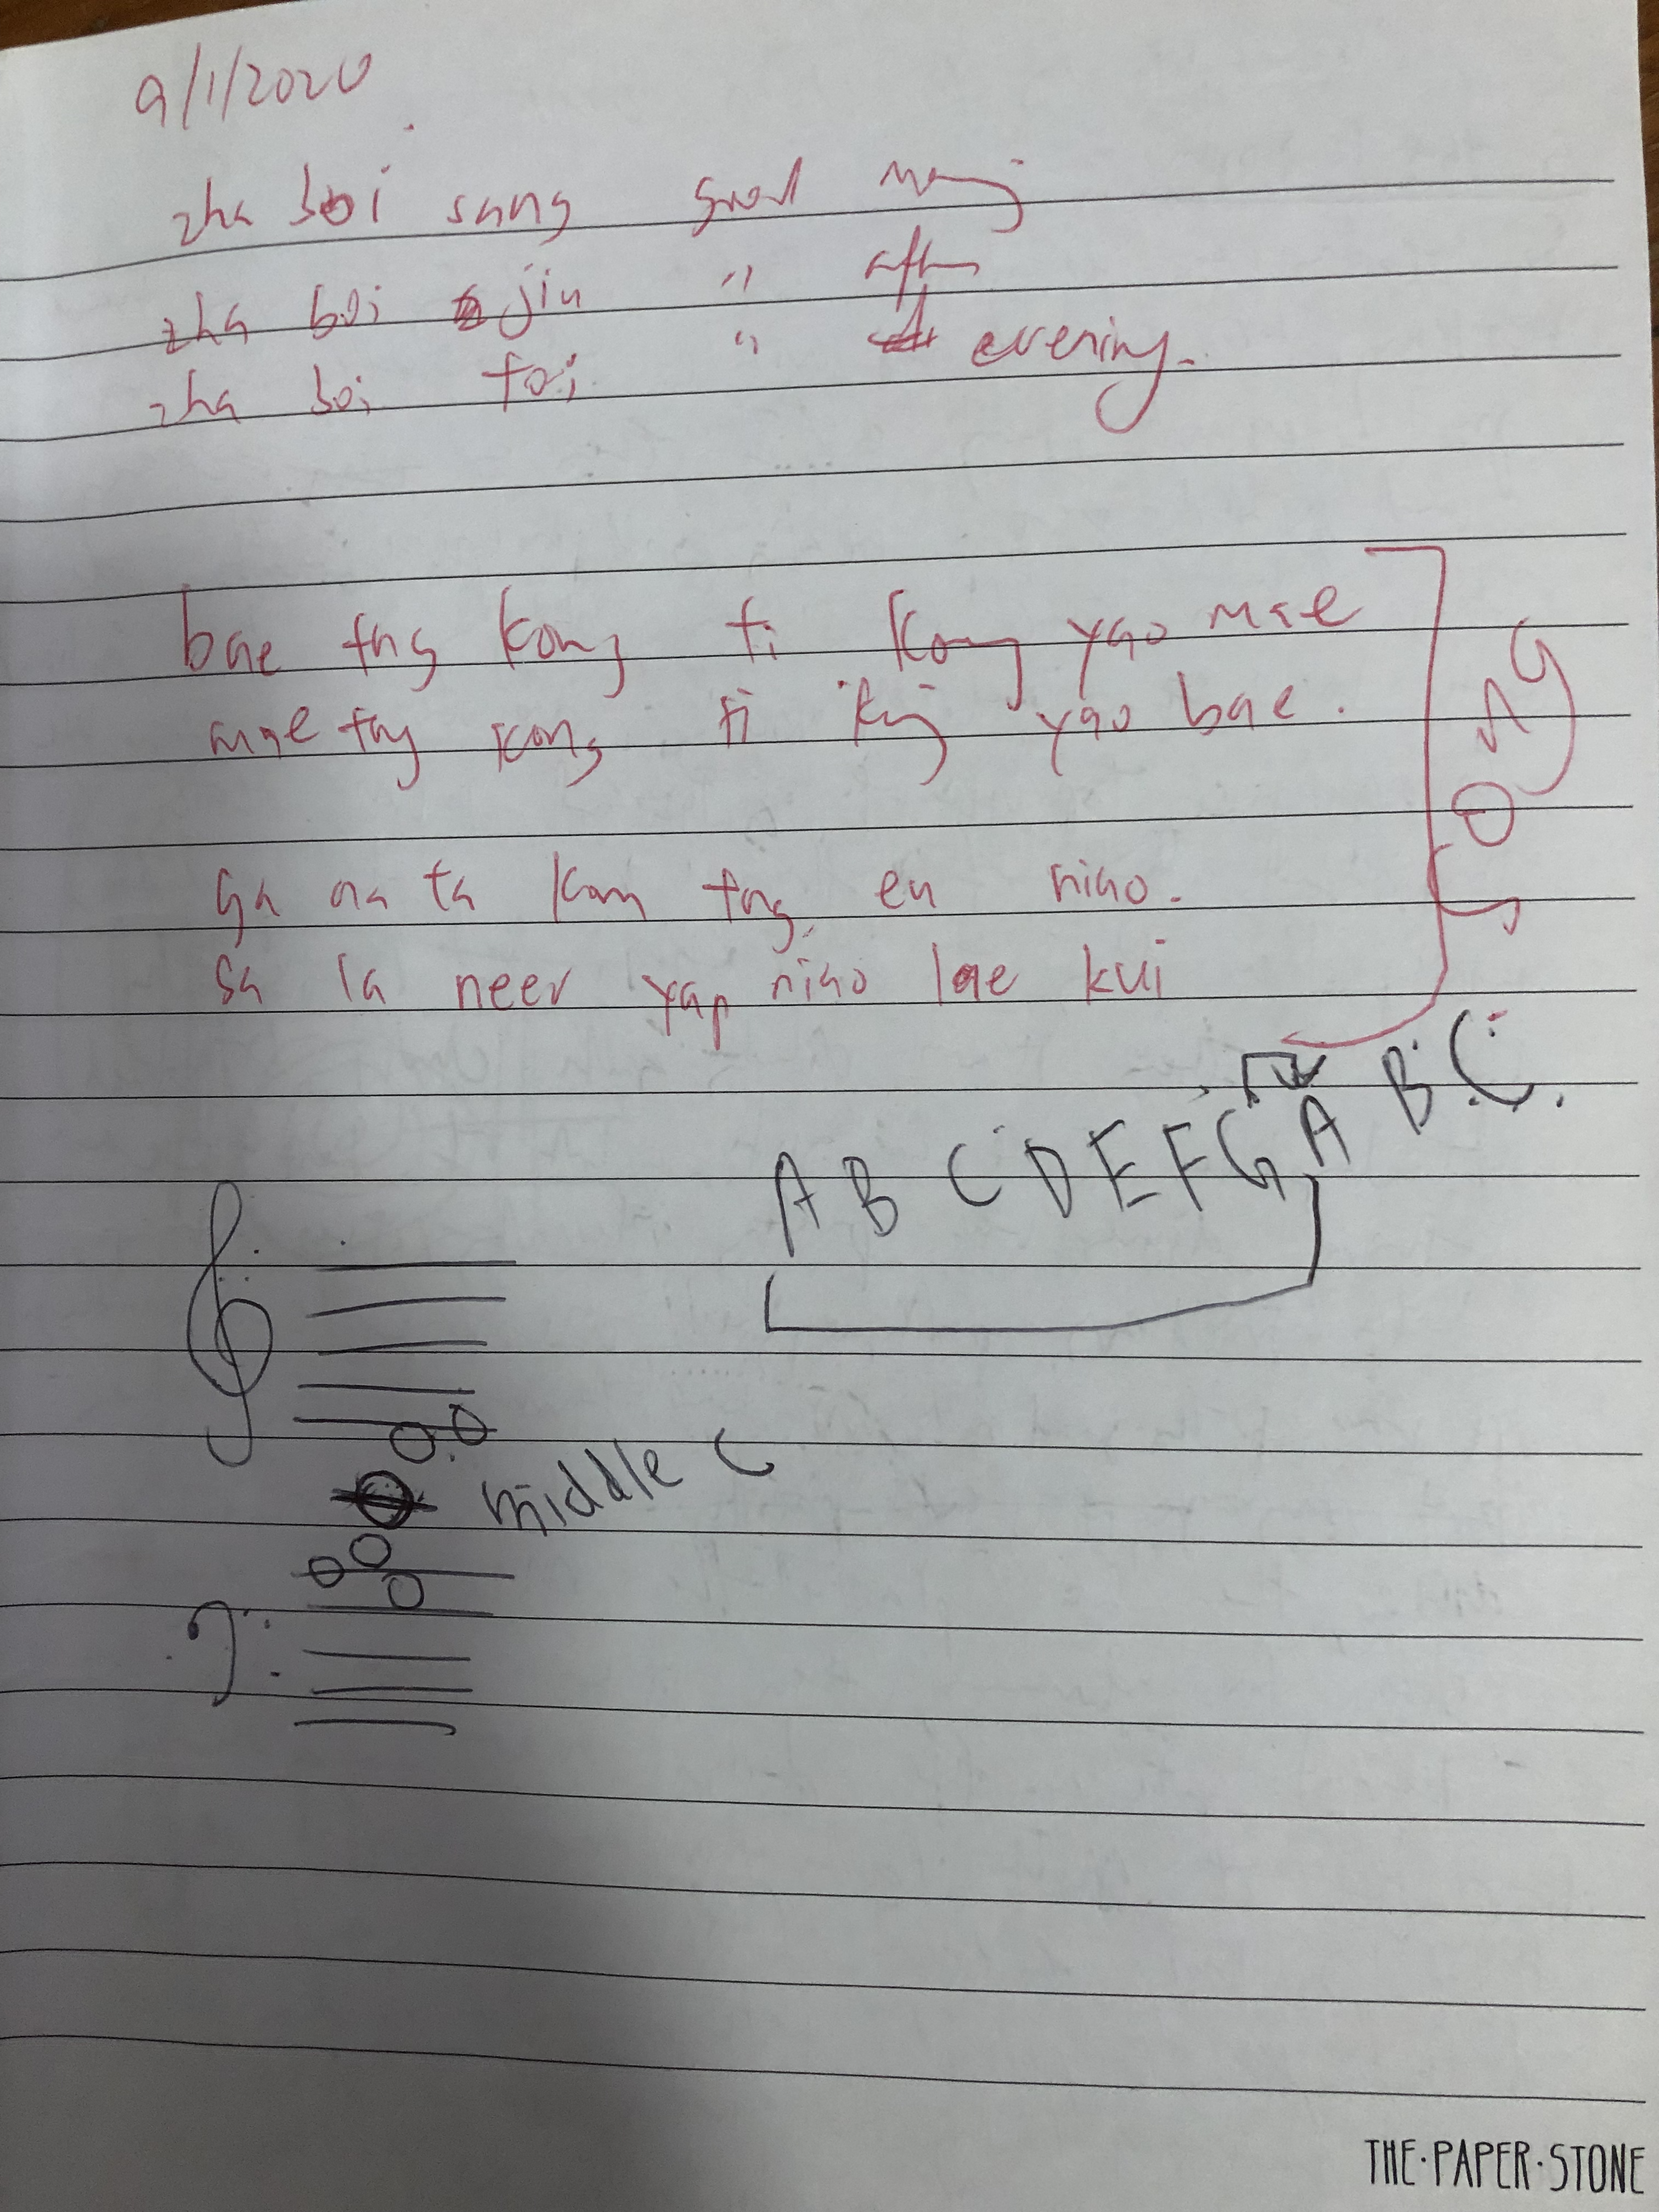 9/1/2020
zha boi sang good
zha boi jiu " aftn
zha boi toi " evening.
bae tng kong ti kong yao mae
mae tng kong ti kong yao bae.
SONG
Ga na ta kan tng en niao.
sa la neer yap niao lae kui
A B C D E F G A B C
middle C
THE·PAPER·STONE